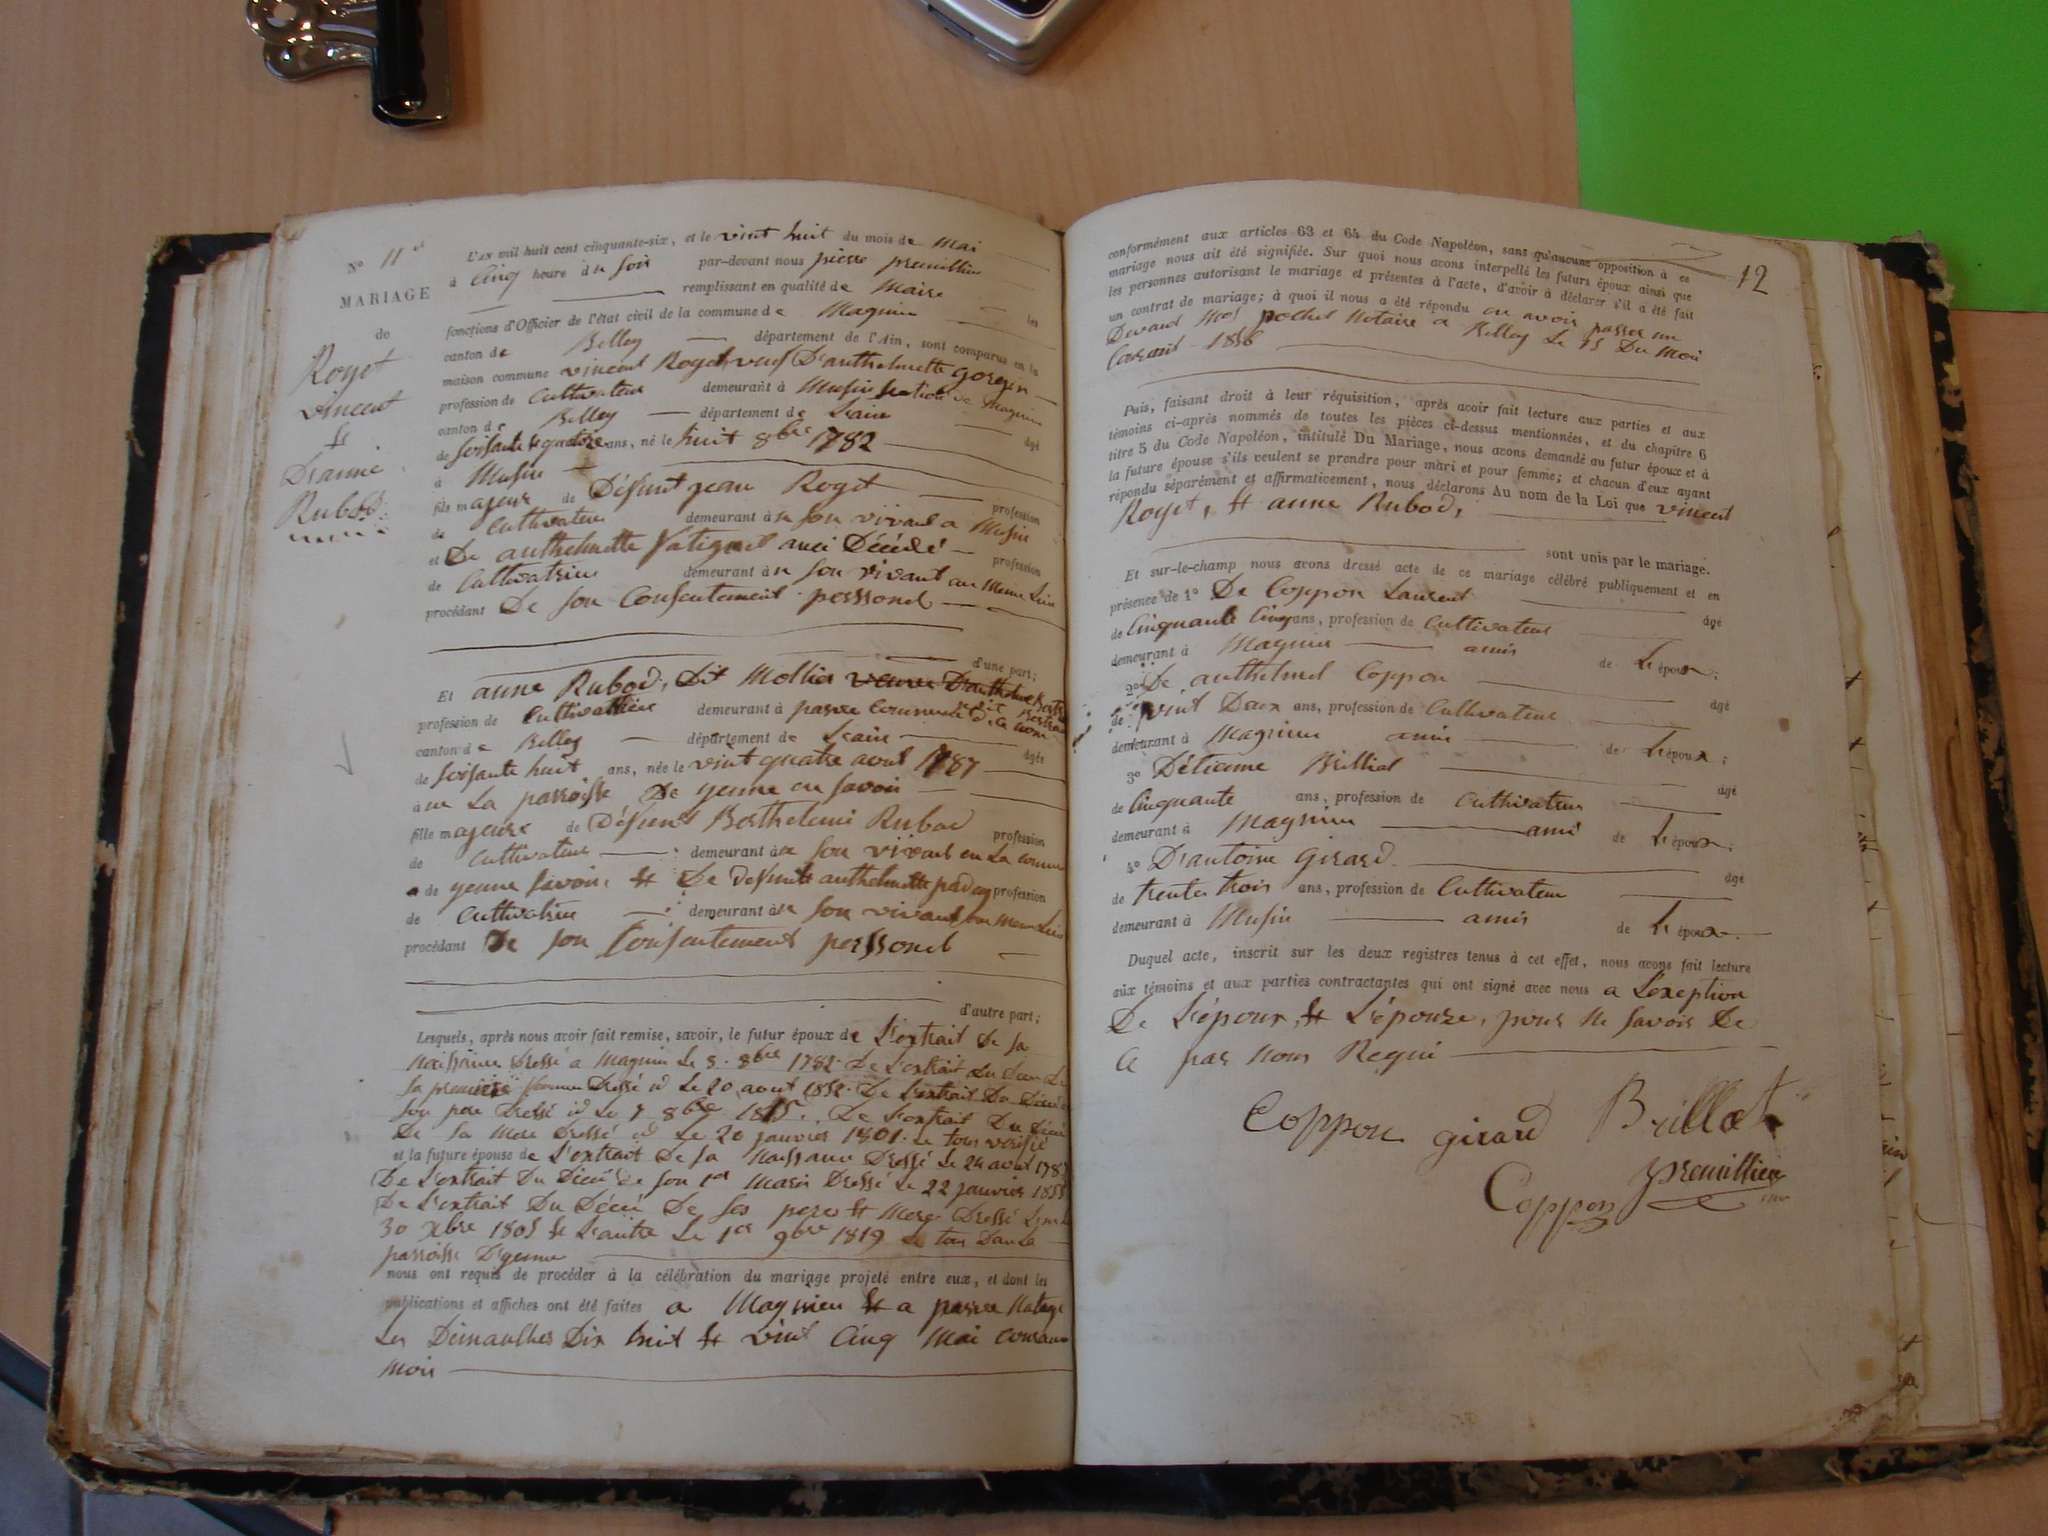 N° 11
MARIAGE
de
Royet
vincent
&
D'anne
Rubod
L'an mil huit cent cinquante-six, et le vint huit du mois de Mai
à Cinq heure du soir par-devant nous pierre premillieu
remplissant en qualité de Maire les
fonctions d'Officier de l'état civil de la commune de Magnieu
canton de Belley département de l'Ain, sont comparus en la
maison commune vincent Royet, veuf D'anthelmette
profession de Cultivateur demeurant à Musin section de Magnieu
canton de Belley département de Lain âgé
de soisante & quatorze ans, né le huit 8bre 1782
à Musin
fils majeur de Défunt jean Royet profession
de Cultivateur demeurant à n son vivant a Musin
et De anthelmette aussi Décédé profession
de Cultivatrice demeurant à n son vivant au Meme Lieu
procédant De son Consentement personel
d'une part;
Et anne Rubod, Dit Mollier
profession de Cultivatrice demeurant à
canton de Belley département de Lain âgée
de soisante huit ans, née le vint quatre aout 1787
à n La paroisse De yenne en savoie
fille majeure de Défunt Berthelemi Rubod profession
de Cultivateur demeurant à n son vivant en La comune
de yenne savoie & De defunte anthelmette profession
de Cultivatrice demeurant à n son vivant au Meme Lieu
procédant De son Consentement personel
d'autre part;
Lesquels, après nous avoir fait remise, savoir, le futur époux de L'extrait de sa
Naissance Dressé a Magnieu Le 8 8bre 1782 De L'extrait du
sa premiere femme Dressé id Le 20 aout 1852 De L'extrait Du Décé
son pere Dressé id Le 7 8bre De L'extrait Du Décé
De sa Mere Dressé id Le 20 janvier 1801 Le tous verifié
et la future épouse de L'extrait De sa Naissance Dressé Le 24 aout 178
De L'extrait Du Décé de son 1er Marie Dressé Le 22 janvier
De L'extrait Du Décé De ses pere & Mere Dressé
30 xbre 1805 & L'autre Le 1er 9bre 1819 Le tous Dans La
paroisse D'yenne
nous ont requis de procéder à la célébration du mariage projeté entre eux, et dont les
publications et affiches ont été faites a Magnieu & a
Les Dimanches Dix huit & vint Cinq Mai courant
mois
12
conformément aux articles 63 et 64 du Code Napoléon, sans qu'aucune opposition à ce
mariage nous ait été signifiée. Sur quoi nous avons interpellé les futurs époux ainsi que
les personnes autorisant le mariage et présentes à l'acte, d'avoir à déclarer s'il a été fait
un contrat de mariage; à quoi il nous a été répondu en avoir passer un
Devant pochet Notaire a Belley Le 15 Du Moi
Courant 1856
Puis, faisant droit à leur réquisition, après avoir fait lecture aux parties et aux
témoins ci-après nommés de toutes les pièces ci-dessus mentionnées, et du chapitre 6
titre 5 du Code Napoléon, intitulé Du Mariage, nous avons demandé au futur époux et à
la future épouse s'ils veulent se prendre pour mari et pour femme; et chacun d'eux ayant
répondu séparément et affirmativement, nous déclarons Au nom de la Loi que vincent
Royet, & anne Rubod,
sont unis par le mariage.
Et sur-le-champ nous avons dressé acte de ce mariage célébré publiquement et en
présence de 1° De Coppon Laurent âgé
de Cinquante Cinq ans, profession de Cultivateur
demeurant à Magnieu amis de L'époux;
2° De anthelmel Coppon âgé
de vint Deux ans, profession de Cultivateur
demeurant à Magnieu amis de L'époux;
3° Détienne Brillat âgé
de Cinquante ans, profession de Cultivateur
demeurant à Magnieu ami de L'époux;
4° D'antoine Girard âgé
de trente trois ans, profession de Cultivateur
demeurant à Musin amis de L'époux.
Duquel acte, inscrit sur les deux registres tenus à cet effet, nous avons fait lecture
aux témoins et aux parties contractantes qui ont signé avec nous a L'exeption
De L'époux, & L'épouze, pour ne savoir De
Ce par nous Requi
Coppon girard Brillat
Coppon premillieu